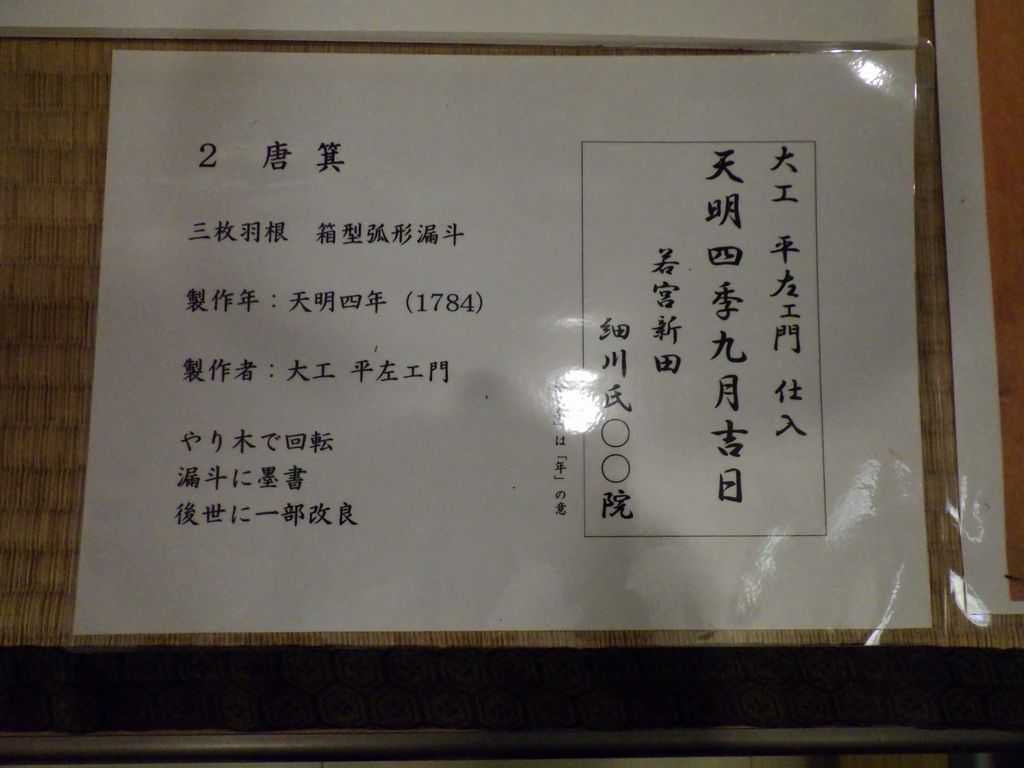 2 唐箕
三枚羽根 箱型弧形漏斗
製作年：天明四年 (1784)
製作者：大工 平左エ門
やり木で回転
漏斗に墨書
後世に一部改良
大工 平左エ門 仕入
天明四季九月吉日
若宮新田
細川氏〇〇院
」は「年」の意